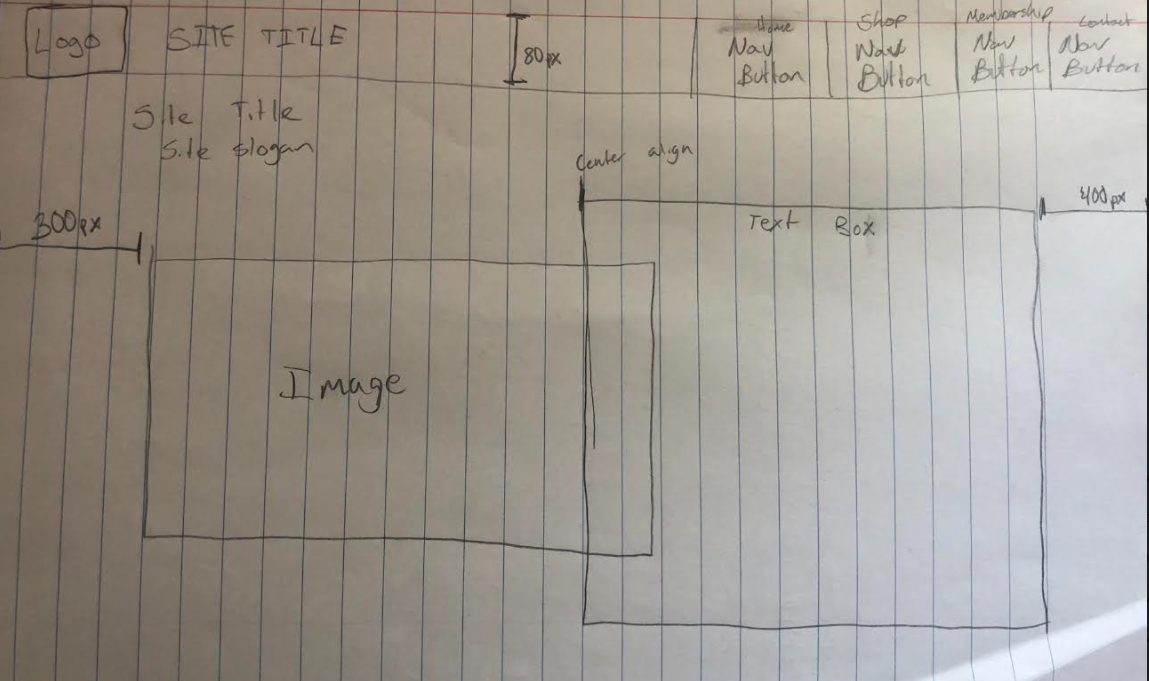 Logo
SITE TITLE
80px
Home
Nav
Button
Shop
Nav
Button
Membership
Nav
Button
Contact
Nav
Button
Site Title
Site Slogan
Center align
300px
400px
Text Box
Image